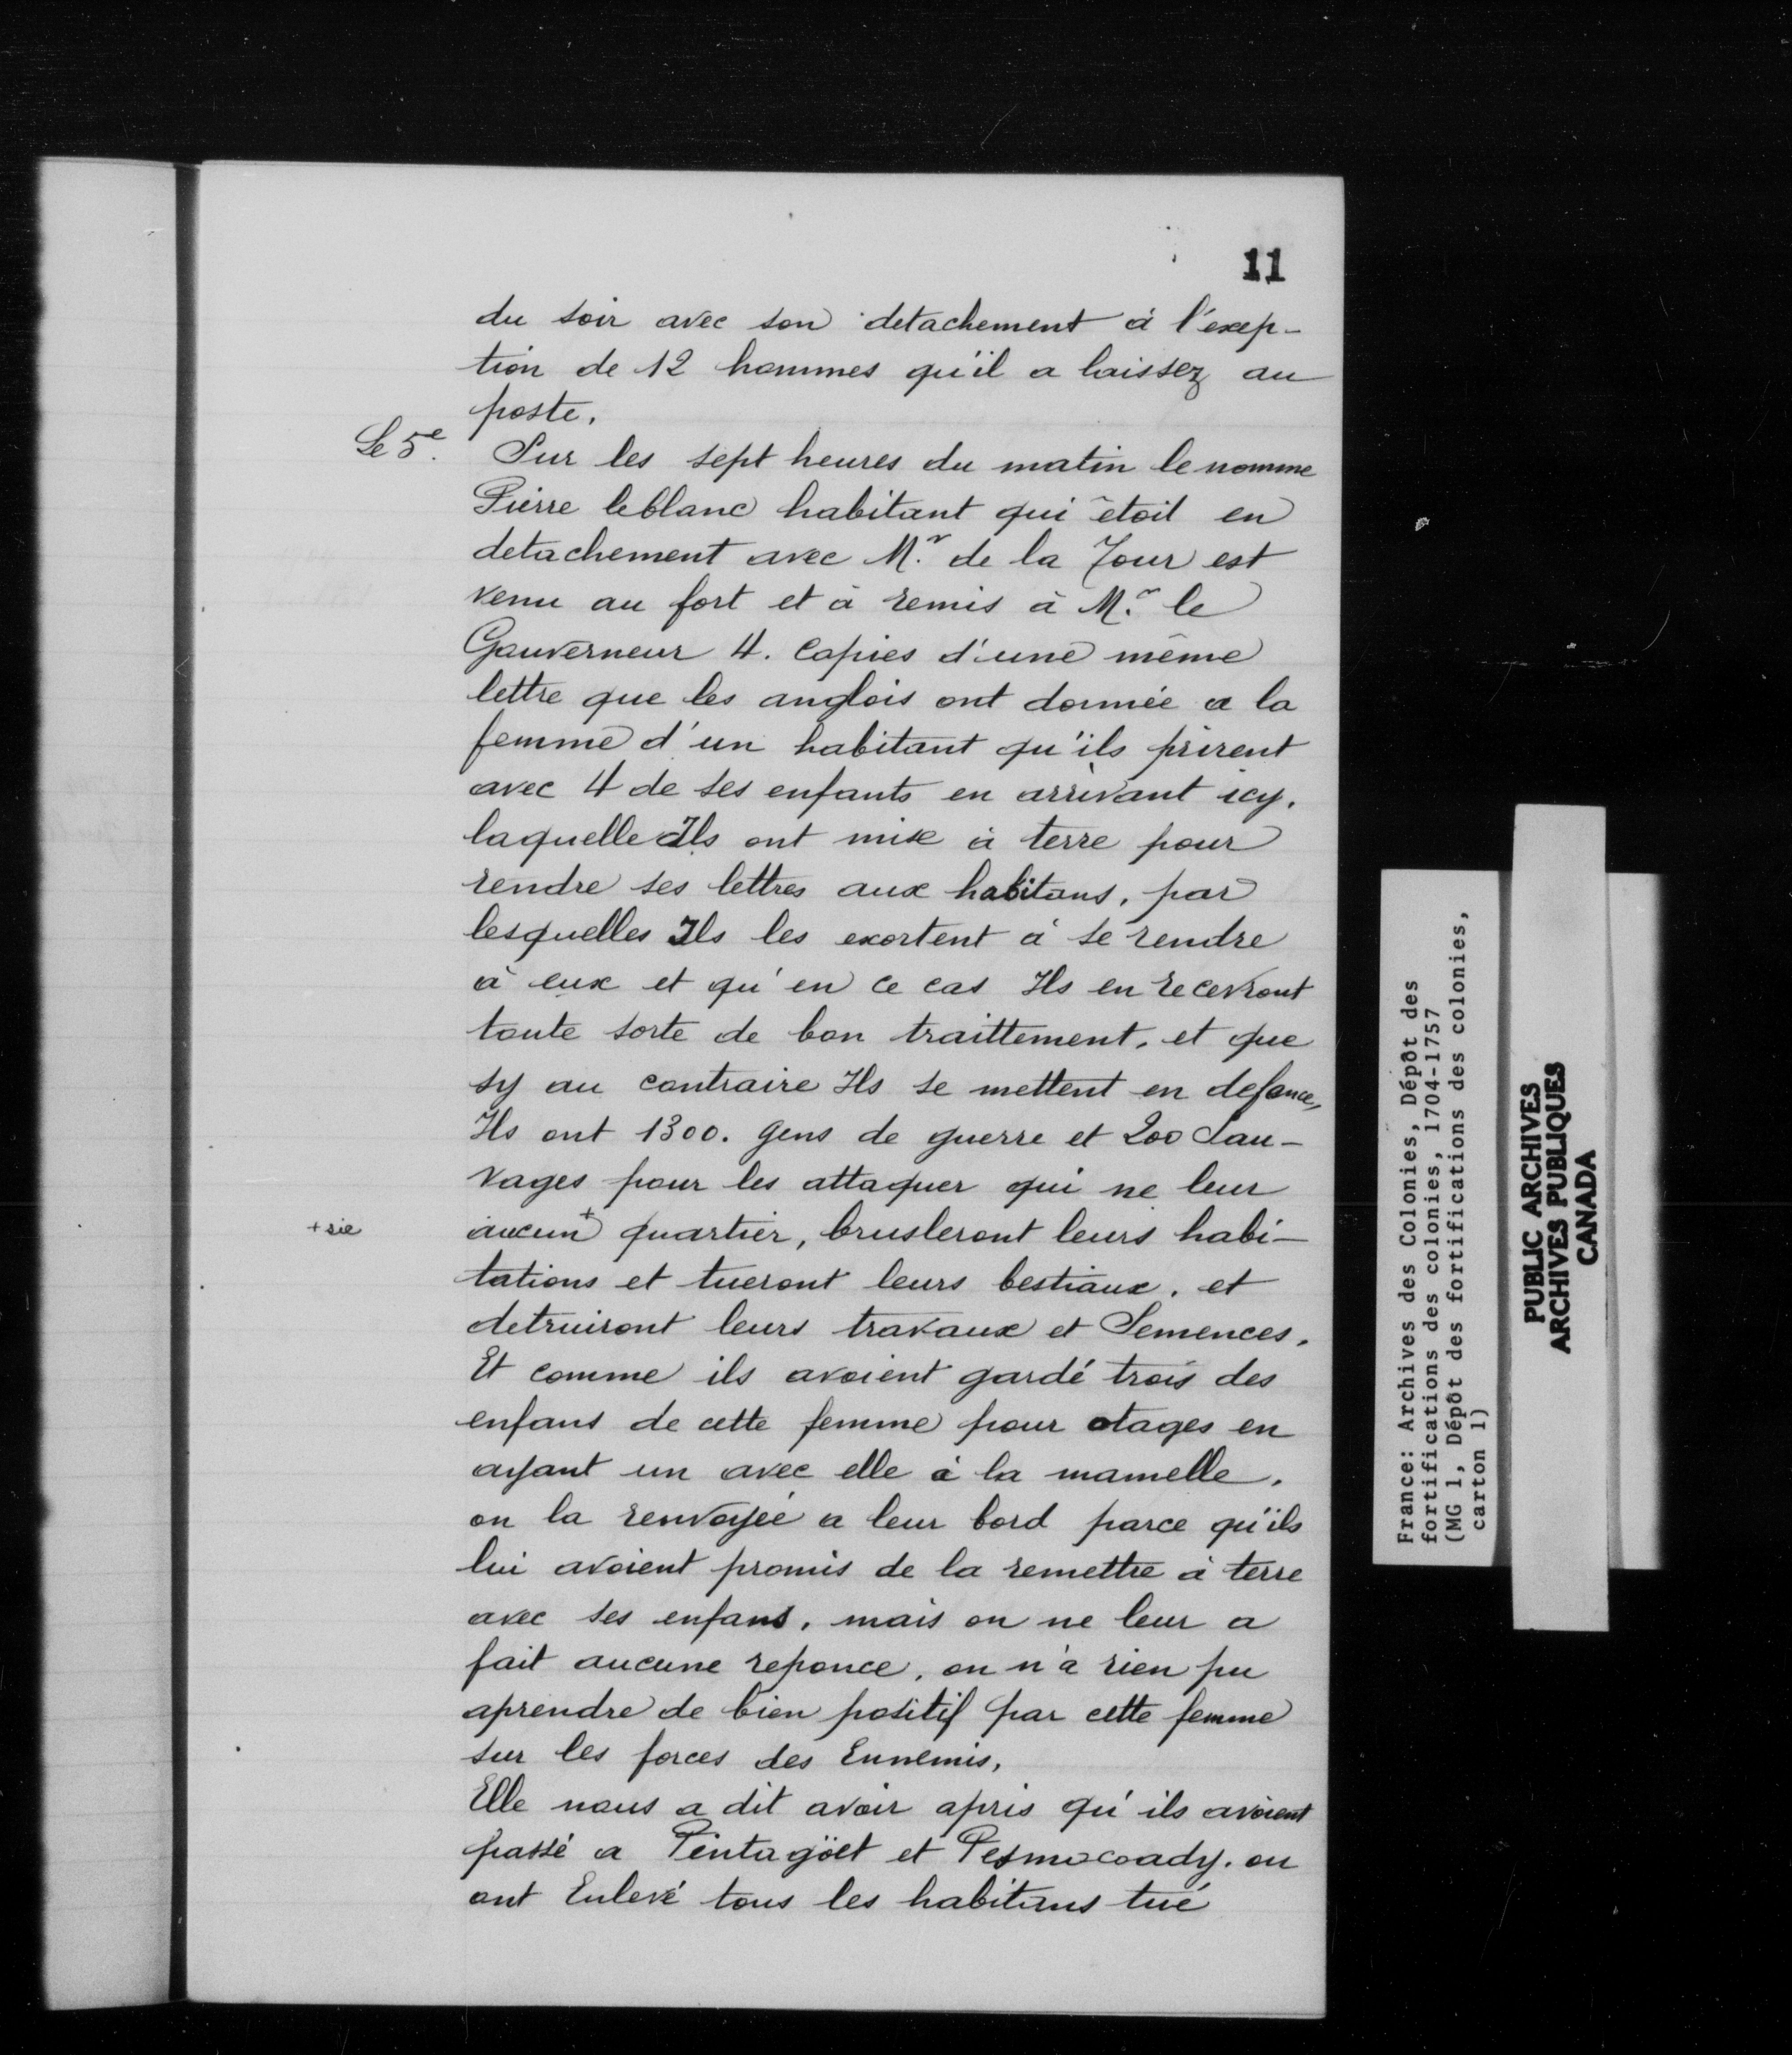 11
du soir avec son detachement à l'excep-
tion de 12 hommes qu'il a laissez au
poste.
Le 5e. Sur les sept heures du matin le nomme
Pierre leblanc habitant qui étoit en
detachement avec Mr. de la Tour est
venu au fort et à remis à Mr. le
Gouverneur 4. Copies d'une même
lettre que les anglois ont donnée a la
femme d'un habitant qu'ils prirent
avec 4 de ses enfants en arrivant icy.
laquelle Ils ont mise à terre pour
rendre ses lettres aux habitans, par
lesquelles Ils les exortent à se rendre
à eux et qu'en ce cas Ils en recevront
toute sorte de bon traittement, et que
sy au contraire Ils se mettent en defance,
Ils ont 1300. gens de guerre et 200 Sau-
vages pour les attaquer qui ne leur
+ sic aucun + quartier, brusleront leurs habi-
tations et tueront leurs bestiaux, et
detruiront leurs travaux et Semences.
Et comme ils avoient gardé trois des
enfans de cette femme pour otages en
ayant un avec elle à la mamelle.
on la renvoyée a leur bord parce qu'ils
lui avoient promis de la remettre à terre
avec ses enfans, mais on ne leur a
fait aucune reponce, on n'a rien pu
aprendre de bien positif par cette femme
sur les forces des Ennemis.
Elle nous a dit avoir apris qu'ils avoient
passé a Pentagöet et Pesmocoady. ou
ont Enlevé tous les habitans tué
France: Archives des Colonies, Dépôt des
fortifications des colonies, 1704-1757
(MG 1, Dépôt des fortifications des colonies,
carton 1)
PUBLIC ARCHIVES
ARCHIVES PUBLIQUES
CANADA